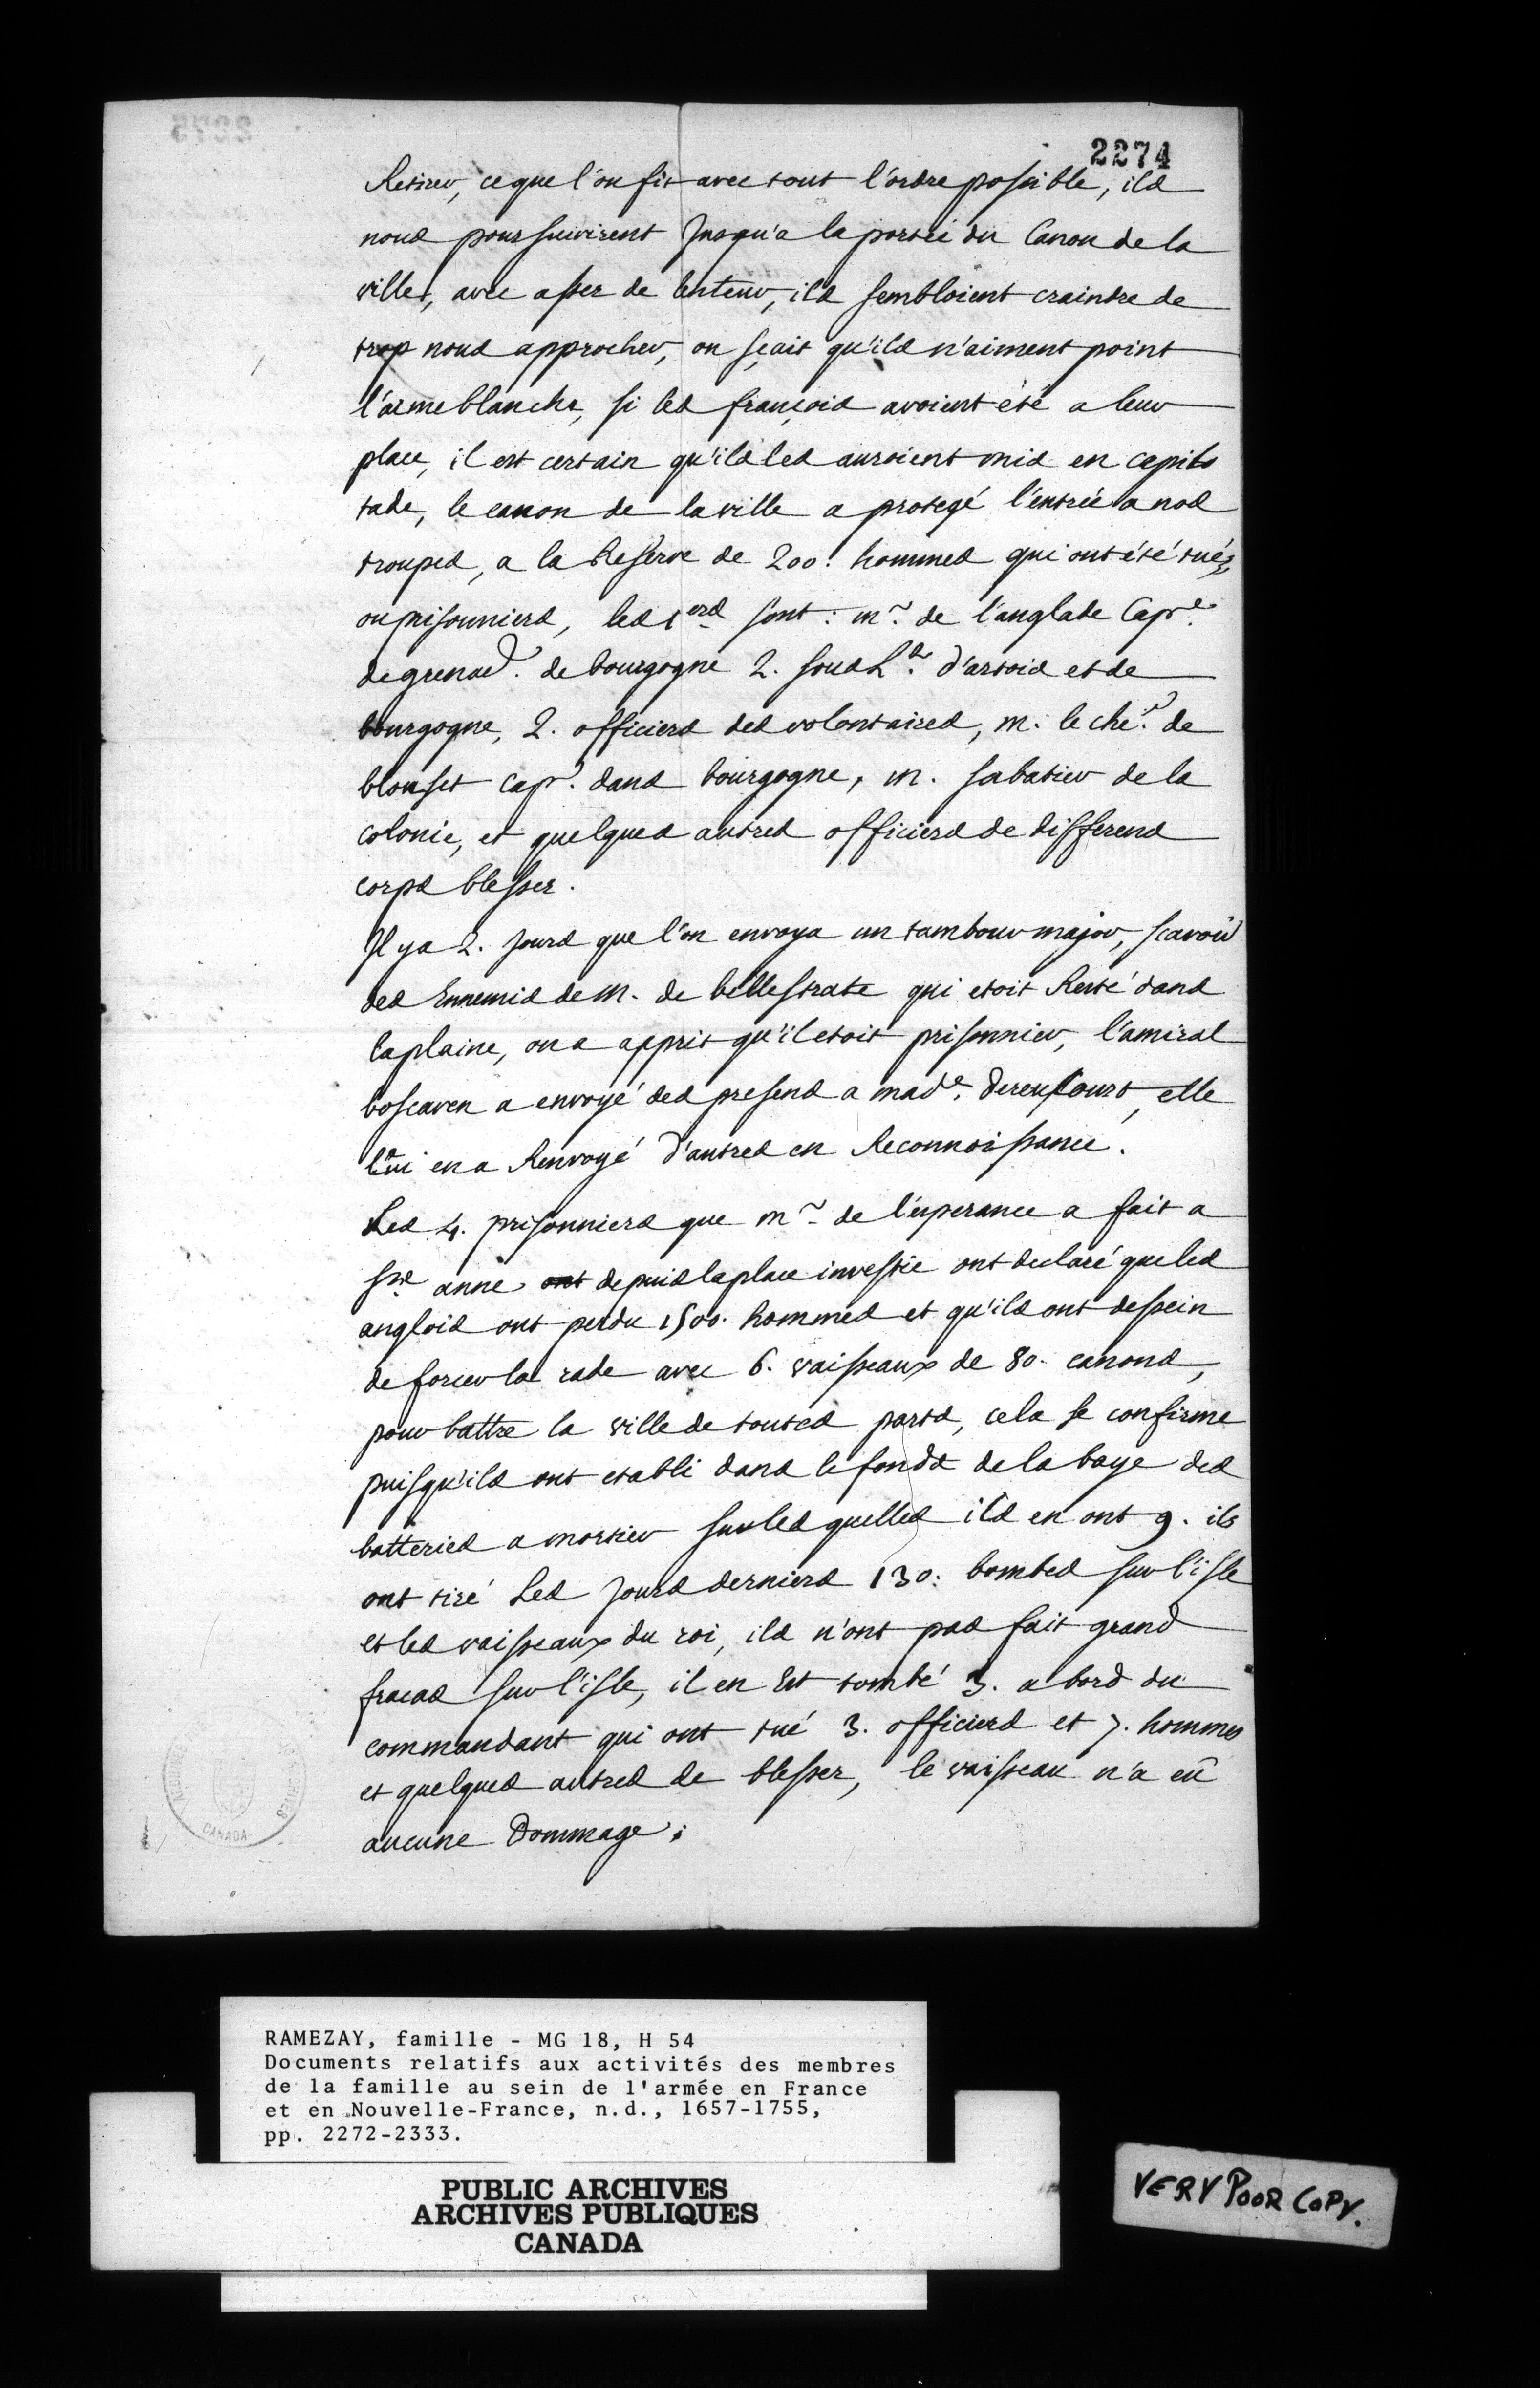 2274
Retirer, ce que l'on fit avec tout l'ordre possible, ils
nous poursuivirent jusqu'a la portée du Canon de la
ville, avec assez de lenteur, ils sembloient craindre de
trop nous approcher, on sçait qu'ils n'aiment point
l'arme blanche, si les françois avoient été a leur
place, il est certain qu'ils les auroient mis en capilo
tade, le canon de la ville a protegé l'entrée a nos
troupes, a la Reserve de 200. hommes qui ont été tués,
ou prisonniers, les 1ers sont: mr de l'anglade Cape.
de grenad. de bourgogne 2. sous Lt. d'artois et de
bourgogne, 2. officiers des volontaires, m. le cher. de
blouset cap. dans bourgogne, m. sabatier de la
colonie, et quelques autres officiers de differens
corps blesser.
Il y a 2. jours que l'on envoya un tambour major, scavoir
des Ennemis de m. de bellestrate qui etoit Resté dans
la plaine, on a apprit qu'il etoit prisonnier, l'amiral
boscawen a envoyé des presens a made. elle
lui en a Renvoyé d'autres en Reconnoissance.
Les 4. prisonniers que mr de l'esperance a fait a
Ste anne ont depuis la place investie ont declaré que les
anglois ont perdu 1500. hommes et qu'ils ont dessein
de forcer la rade avec 6. vaisseaux de 80. canons,
pour battre la ville de toutes parts, cela se confirme
puisqu'ils ont etabli dans le fonds de la baye des
batteries a mortier sur lesquelles ils en ont 9. ils
ont tiré Les jours derniers 130. bombes sur l'isle
et les vaisseaux du roi, ils n'ont pas fait grand
fracas sur l'isle, il en Est tombé 3. a bord du
commandant qui ont tué 3. officiers et 7. hommes
et quelques autres de blesser, le vaisseau n'a eû
aucune Dommage;
CANADA
RAMEZAY, famille - MG 18, H 54
Documents relatifs aux activités des membres
de la famille au sein de l'armée en France
et en Nouvelle-France, n.d., 1657-1755,
pp. 2272-2333.
PUBLIC ARCHIVES
ARCHIVES PUBLIQUES
CANADA
VERY POOR COPY.